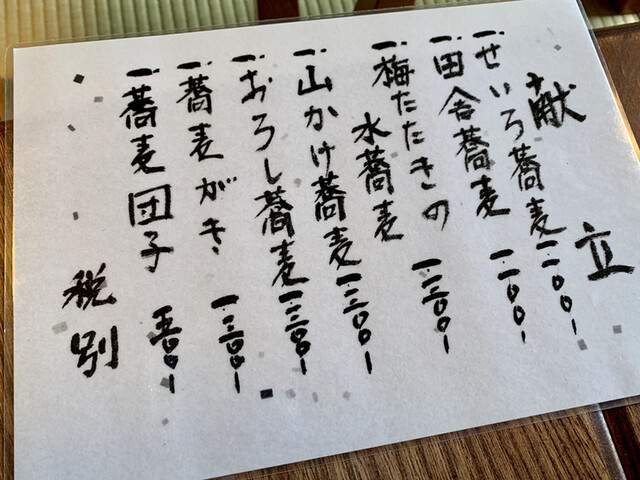 献立
一、せいろ蕎麦 一、一〇〇ー
一、田舎蕎麦 一、一〇〇ー
一、梅たたきの
水蕎麦 一、三〇〇ー
一、山かけ蕎麦 一、三〇〇ー
一、おろし蕎麦 一、三〇〇ー
一、蕎麦がき 一、三〇〇ー
一、蕎麦団子 五〇〇ー
税別